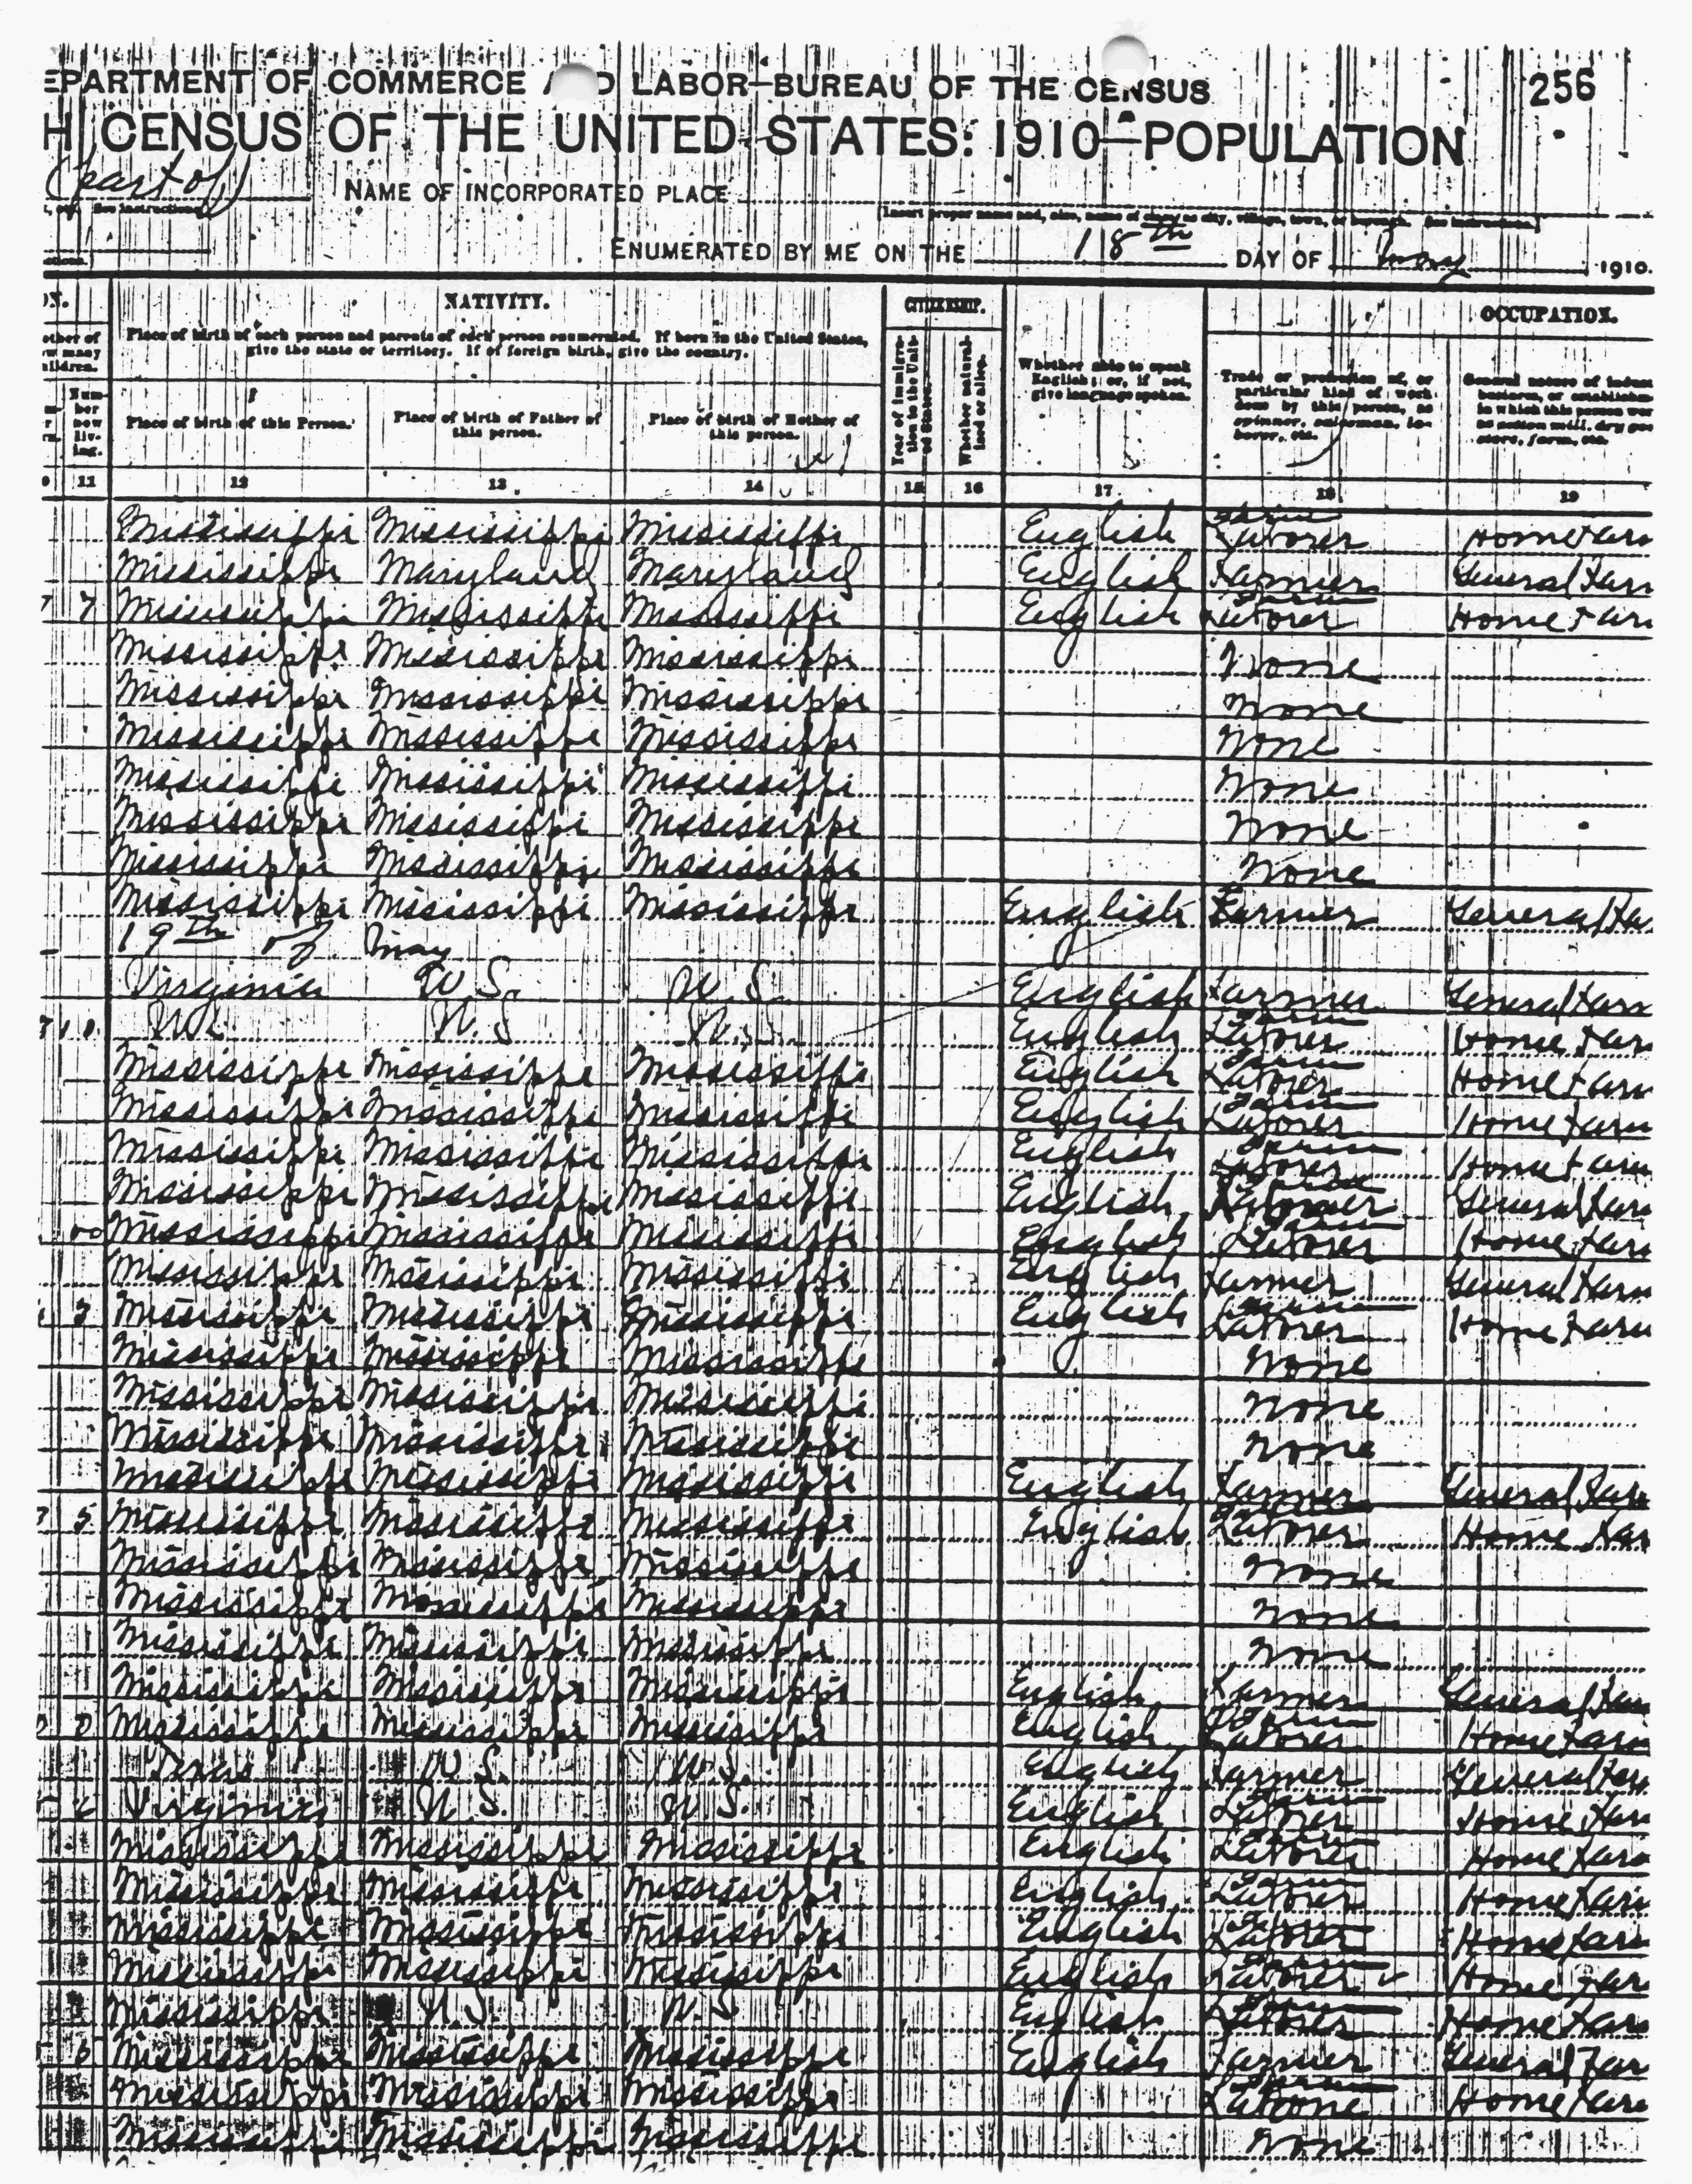 EPARTMENT OF COMMERCE A D LABOR—BUREAU OF THE CENSUS
256
H CENSUS OF THE UNITED STATES: 1910—POPULATION
(part of)
NAME OF INCORPORATED PLACE
[Insert proper name and, also, name of class, as city, village, town, or borough. See instructions.]
ENUMERATED BY ME ON THE 18th DAY OF May 1910.
NATIVITY. CITIZENSHIP. OCCUPATION.
Place of birth of each person and parents of each person enumerated. If born in the United States, give the state or territory. If of foreign birth, give the country.
Number now living.
Place of birth of this Person.
Place of birth of Father of this person.
Place of birth of Mother of this person.
Year of immigration to the United States.
Whether naturalized or alien.
Whether able to speak English; or, if not, give language spoken.
Trade or profession of, or particular kind of work done by this person, as spinner, salesman, laborer, etc.
General nature of indus
business, or establishm
in which this person wor
as cotton mill, dry goo
store, farm, etc.
11 12 13 14 15 16 17 18 19
Mississippi Mississippi Mississippi English Farm Laborer Home Farm
Mississippi Maryland Maryland English Farmer General Farm
7 7 Mississippi Mississippi Mississippi English Farm Laborer Home Farm
Mississippi Mississippi Mississippi None
Mississippi Mississippi Mississippi None
Mississippi Mississippi Mississippi None
Mississippi Mississippi Mississippi None
Mississippi Mississippi Mississippi None
Mississippi Mississippi Mississippi None
Mississippi Mississippi Mississippi English Farmer General Fa
19th of May
Virginia U.S. U.S. English Farmer General Farm
U.S. U.S. English Farm Laborer Home Far
Mississippi Mississippi Mississippi English Farm Laborer Home Farm
Mississippi Mississippi Mississippi English Farm Laborer Home Farm
Mississippi Mississippi Mississippi English Farm Laborer Home Farm
Mississippi Mississippi Mississippi English General Farm
Mississippi Mississippi Mississippi English Farm Laborer Home Farm
Mississippi Mississippi Mississippi English Farmer General Farm
3 Mississippi Mississippi Mississippi English Farm Laborer Home Farm
Mississippi Mississippi Mississippi None
Mississippi Mississippi Mississippi None
Mississippi Mississippi Mississippi None
Mississippi Mississippi Mississippi English Farmer General Farm
7 5 Mississippi Mississippi Mississippi English Farm Laborer Home Far
Mississippi Mississippi Mississippi None
Mississippi Mississippi Mississippi None
Mississippi Mississippi Mississippi None
Mississippi Mississippi Mississippi English Farmer General Farm
Mississippi Mississippi Mississippi English Farm Laborer Home Farm
Texas U.S. U.S. English Farmer General Farm
Virginia U.S. U.S. English Farm Laborer Home Farm
Mississippi Mississippi Mississippi English Farm Laborer Home Farm
Mississippi Mississippi Mississippi English Farm Laborer Home Farm
Mississippi Mississippi Mississippi English Farm Laborer Home Farm
Mississippi Mississippi Mississippi English Farm Laborer Home Far
Mississippi U.S. U.S. English Farm Laborer Home Farm
6 Mississippi Mississippi Mississippi English Farmer General Far
Mississippi Mississippi Mississippi Home Farm
Mississippi Mississippi Mississippi None